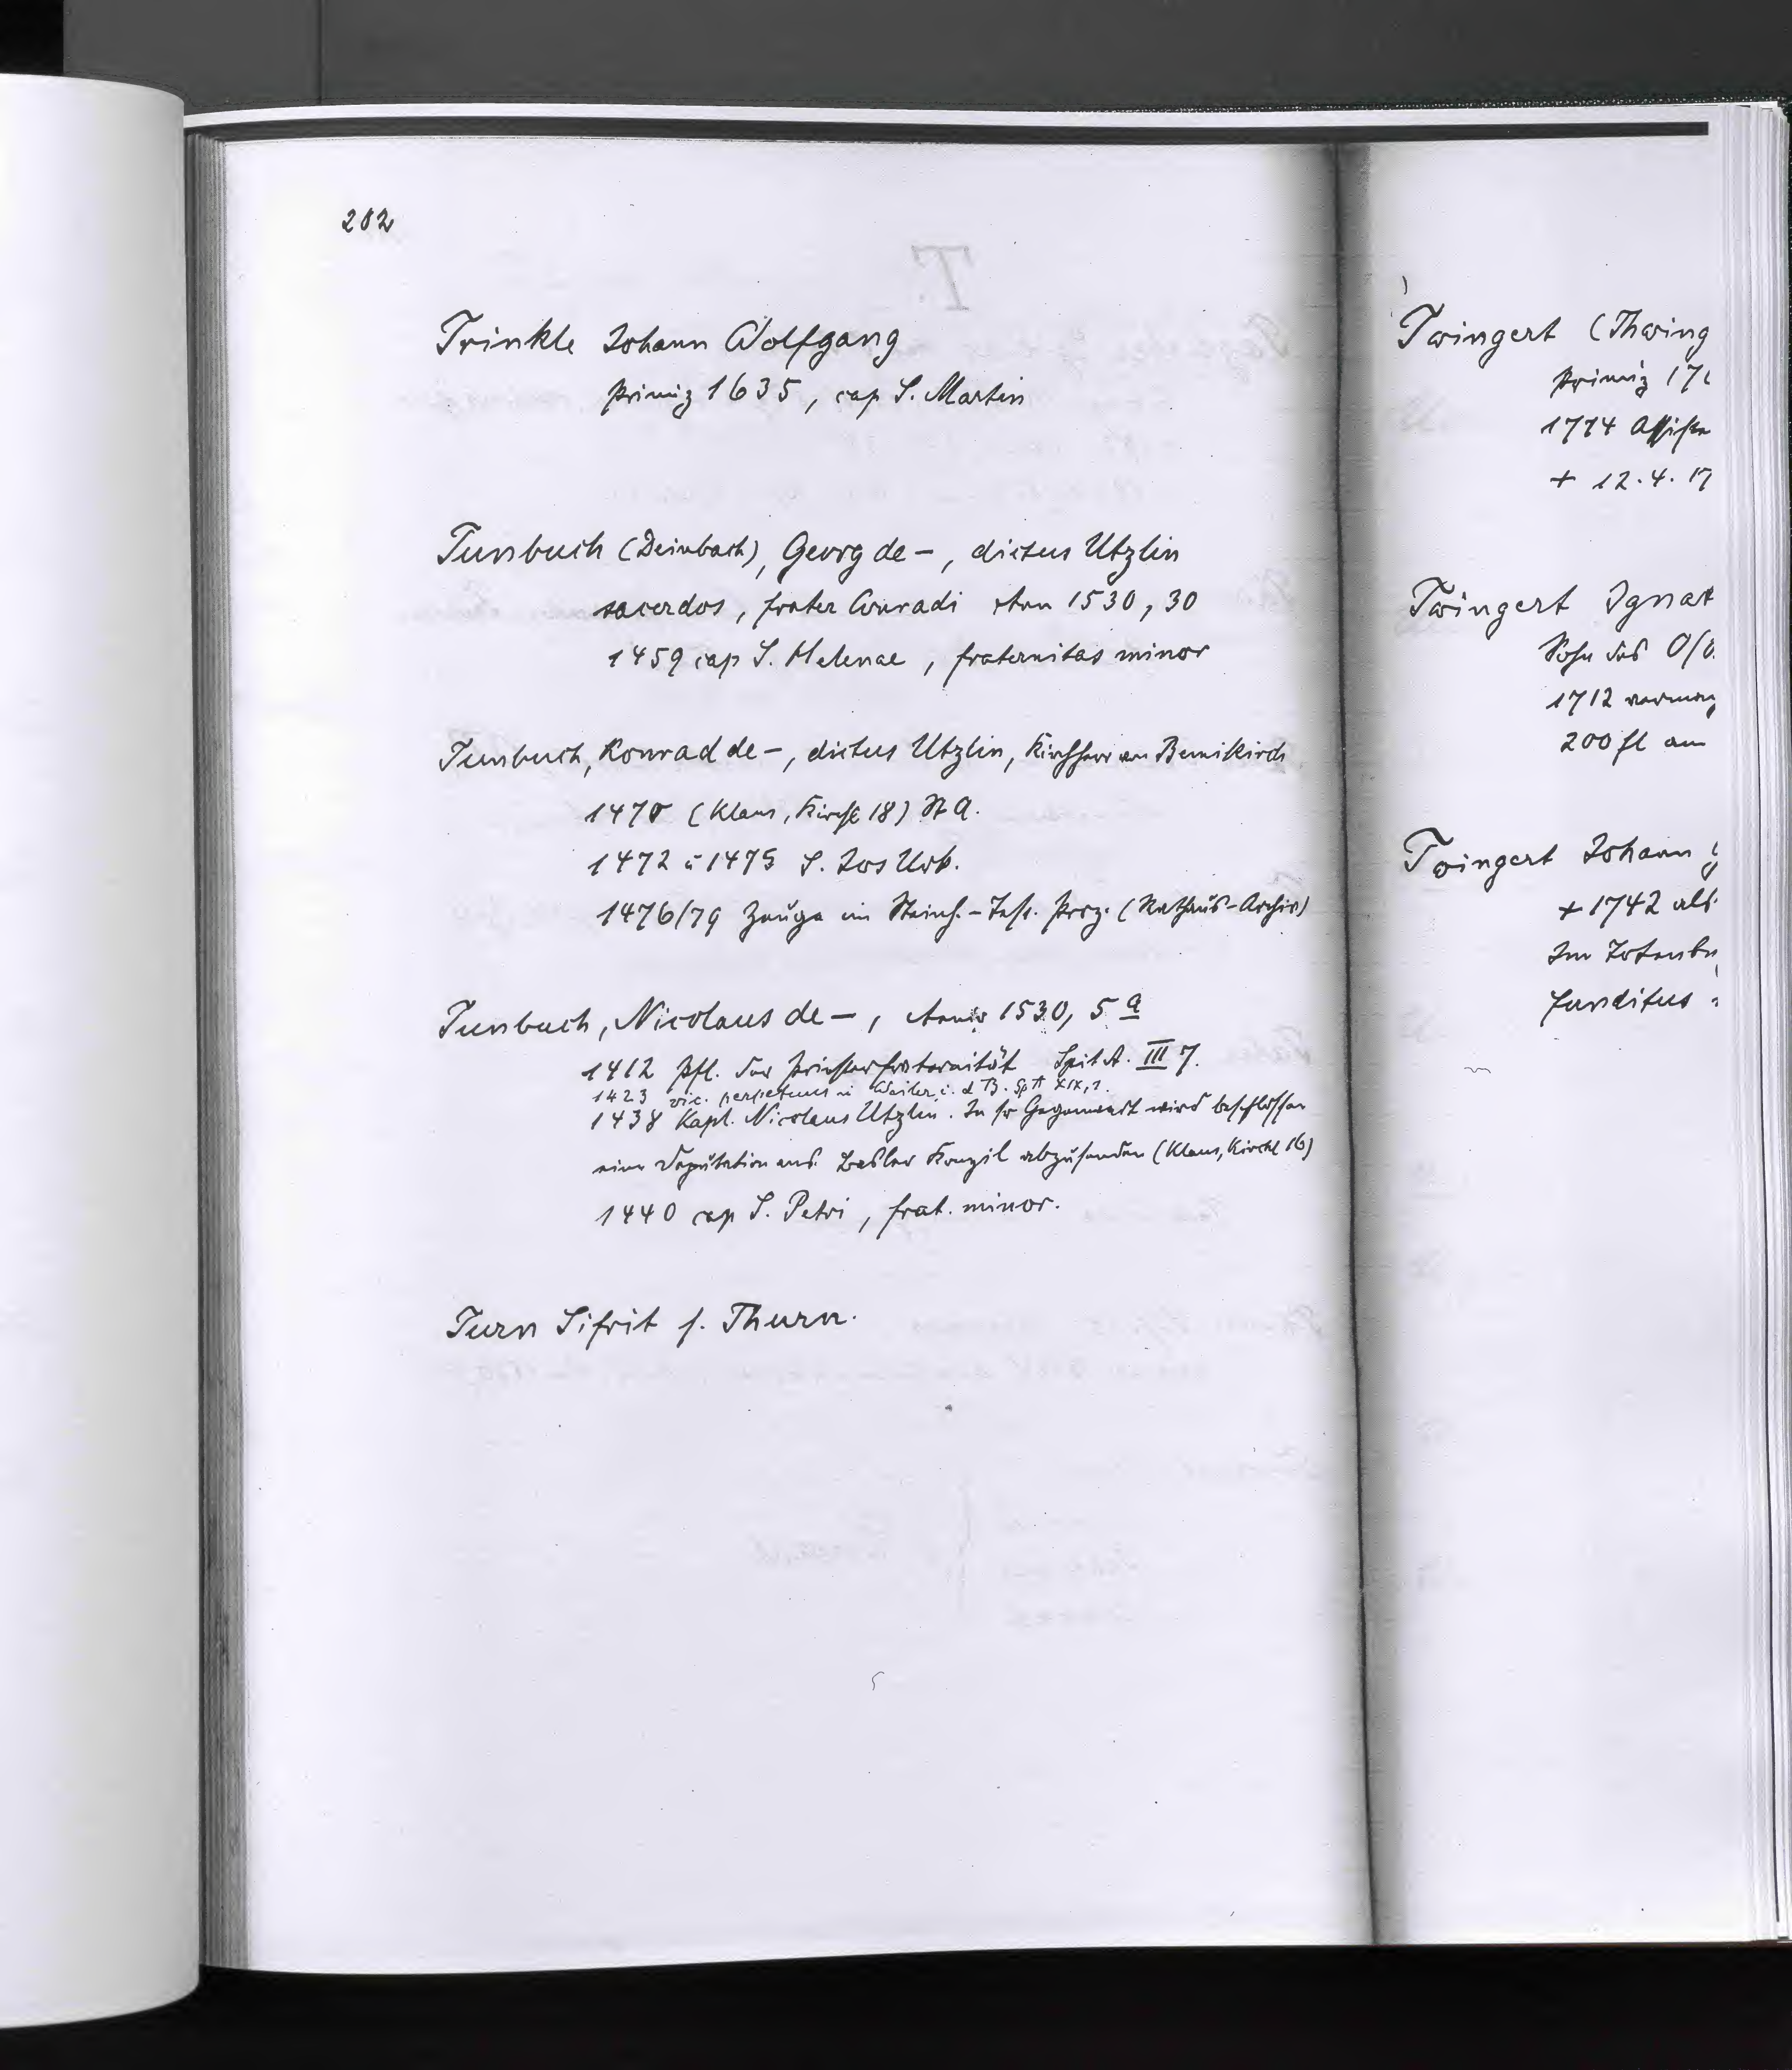 202
Trinkle Johann Wolfgang
Primiz 1635, cap S. Martin
Tunbuch (Deinbach), Georg de –, dictus Utzlin
sacerdos, frater Conradi 1530, 30
1459 cap S. Helenae, fraternitas minor
Tunbuch, Konrad de –, dictus Utzlin, Kirchherr
1470 (Klaus, Kirche 18) St A.
1472 u 1475 S. Jos Urb.
1476/79 Zeuge im Proz. (Rathaus-Archiv)
Tunbuch, Nicolaus de –, 1530, 5 a
1412 Pfl. der Priesterfraternität Spit A. III 7.
1423 vic. perpetuus in Weiler i. d B. Sp A XIX,1.
1438 Kapl. Nicolaus Utzlin. In sr Gegenwart wird beschlossen
eine Deputation ans Basler Konzil abzusenden (Klaus, Kirchl 16)
1440 cap S. Petri, frat. minor.
Turn Sifrit s. Thurn.
Twingert (Thwing
Primiz 17
1774 Assisten
+ 12.4.17
Twingert Ignat
Sohn des
1712
200 fl am
Twingert Johann
+ 1742 als
Im Totenbu
funditus